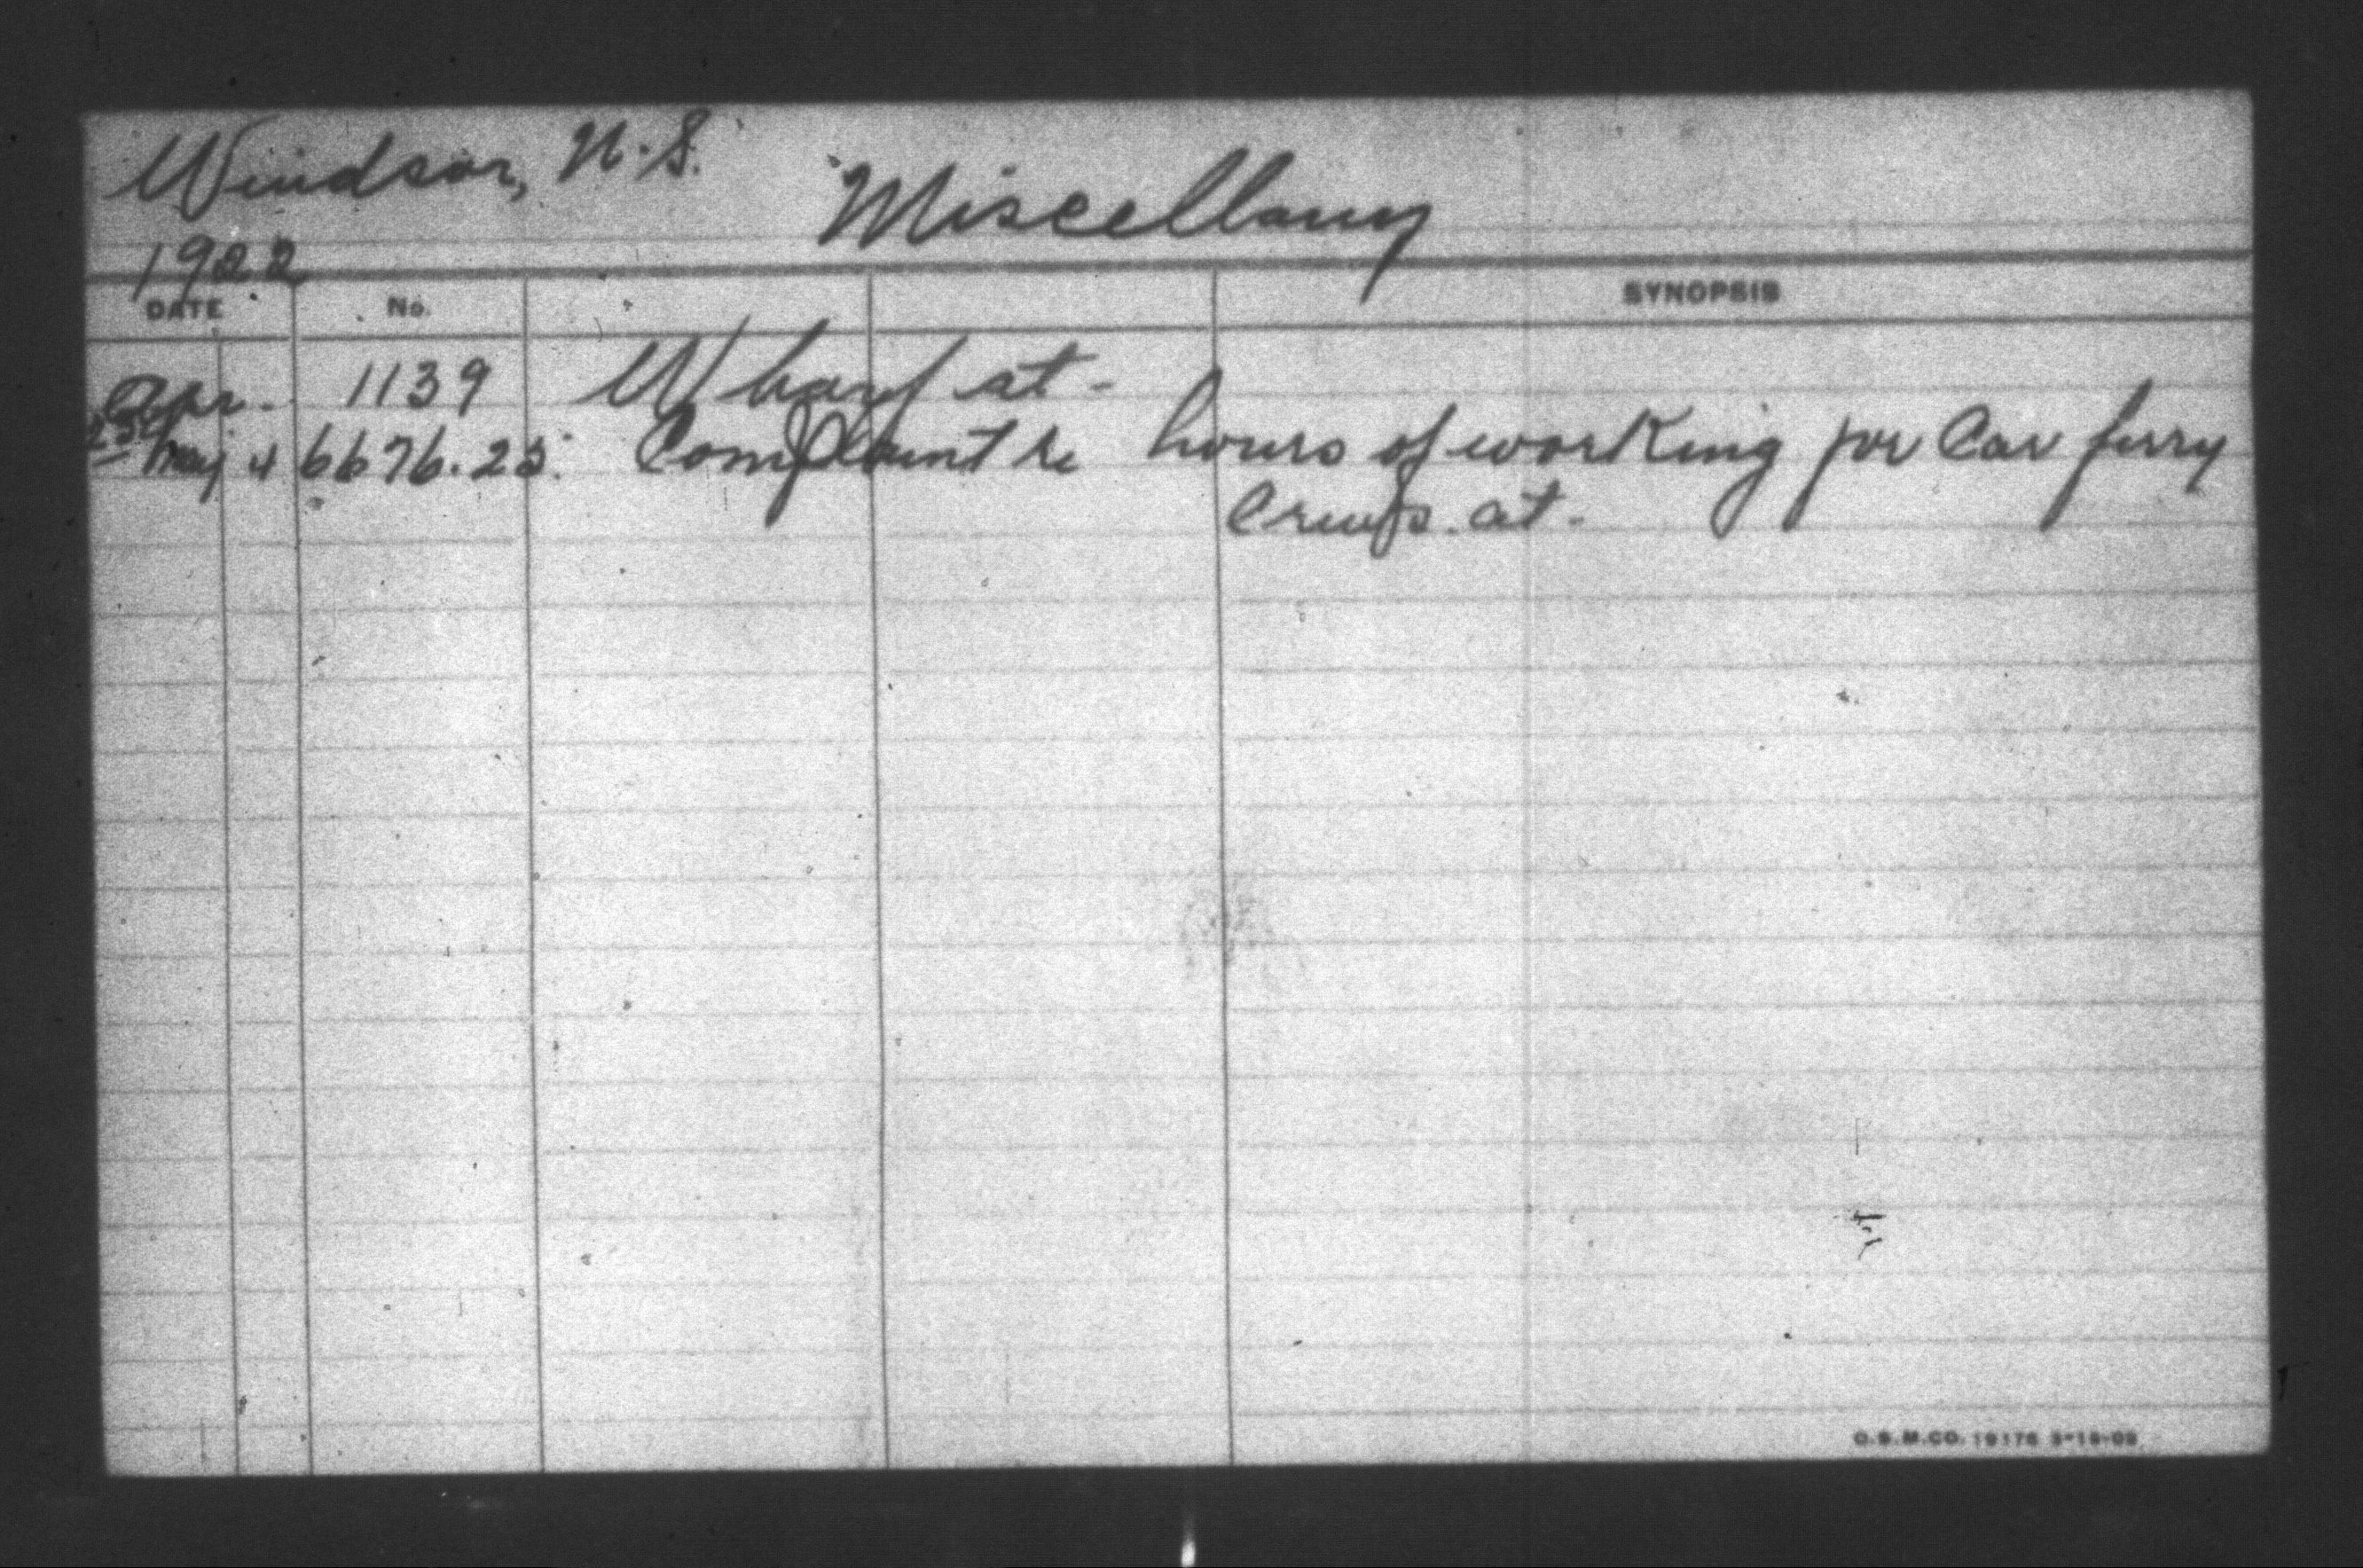 Windsor, N.S.
Miscellany
1922
DATE No. SYNOPSIS
Apr. 1139 Wharf at -
23 May 4 6676.25. Complaint re hours of working for Car ferry
Crews. at -
O.S.M.CO. 19176 3-16-03